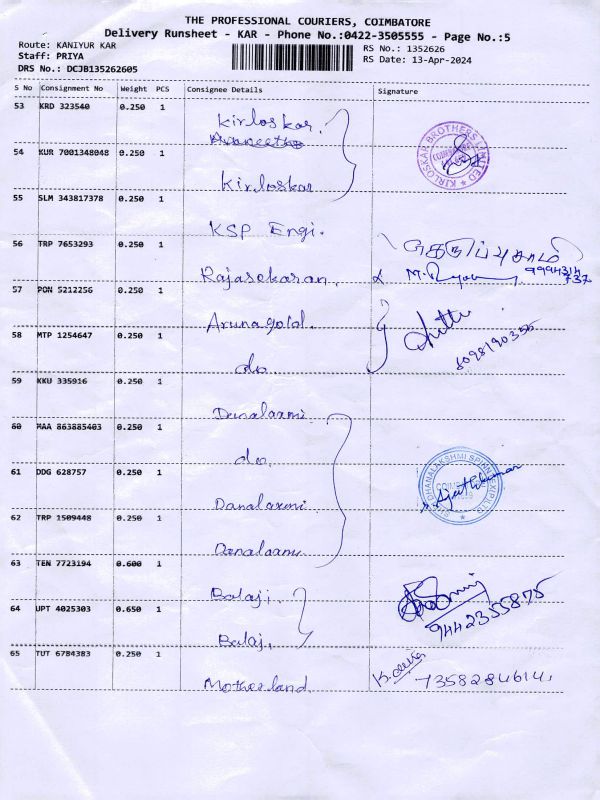 THE PROFESSIONAL COURIERS, COIMBATORE
Delivery Runsheet - KAR - Phone No.:0422-3505555 - Page No.:5
Route: KANIYUR KAR
RS No.: 1352626
Staff: PRIYA
RS Date: 13-Apr-2024
DRS No.: DCJB135262605
S No Consignment No Weight PCS Consignee Details Signature
53 KRD 323540 0.250 1 Kirloskar
54 KUR 7001348048 0.250 1 Kirloskar
KIRLOSKAR BROTHERS LIMITED
55 SLM 343817378 0.250 1 KSP Engi.
56 TRP 7653293 0.250 1 Rajasekaran.
9994314
737
57 PON 5212256 0.250 1 Arunagold.
58 MTP 1254647 0.250 1 do
8098190355
59 KKU 335916 0.250 1 Danalaxmi
60 MAA 863885403 0.250 1 do.
61 DDG 628757 0.250 1 Danalaxmi
DHANALAKSHMI
62 TRP 1509448 0.250 1
63 TEN 7723194 0.600 1 Balaji.
64 UPT 4025303 0.650 1 Balaj.
9442355875
65 TUT 6784383 0.250 1 Motherland
7358284614